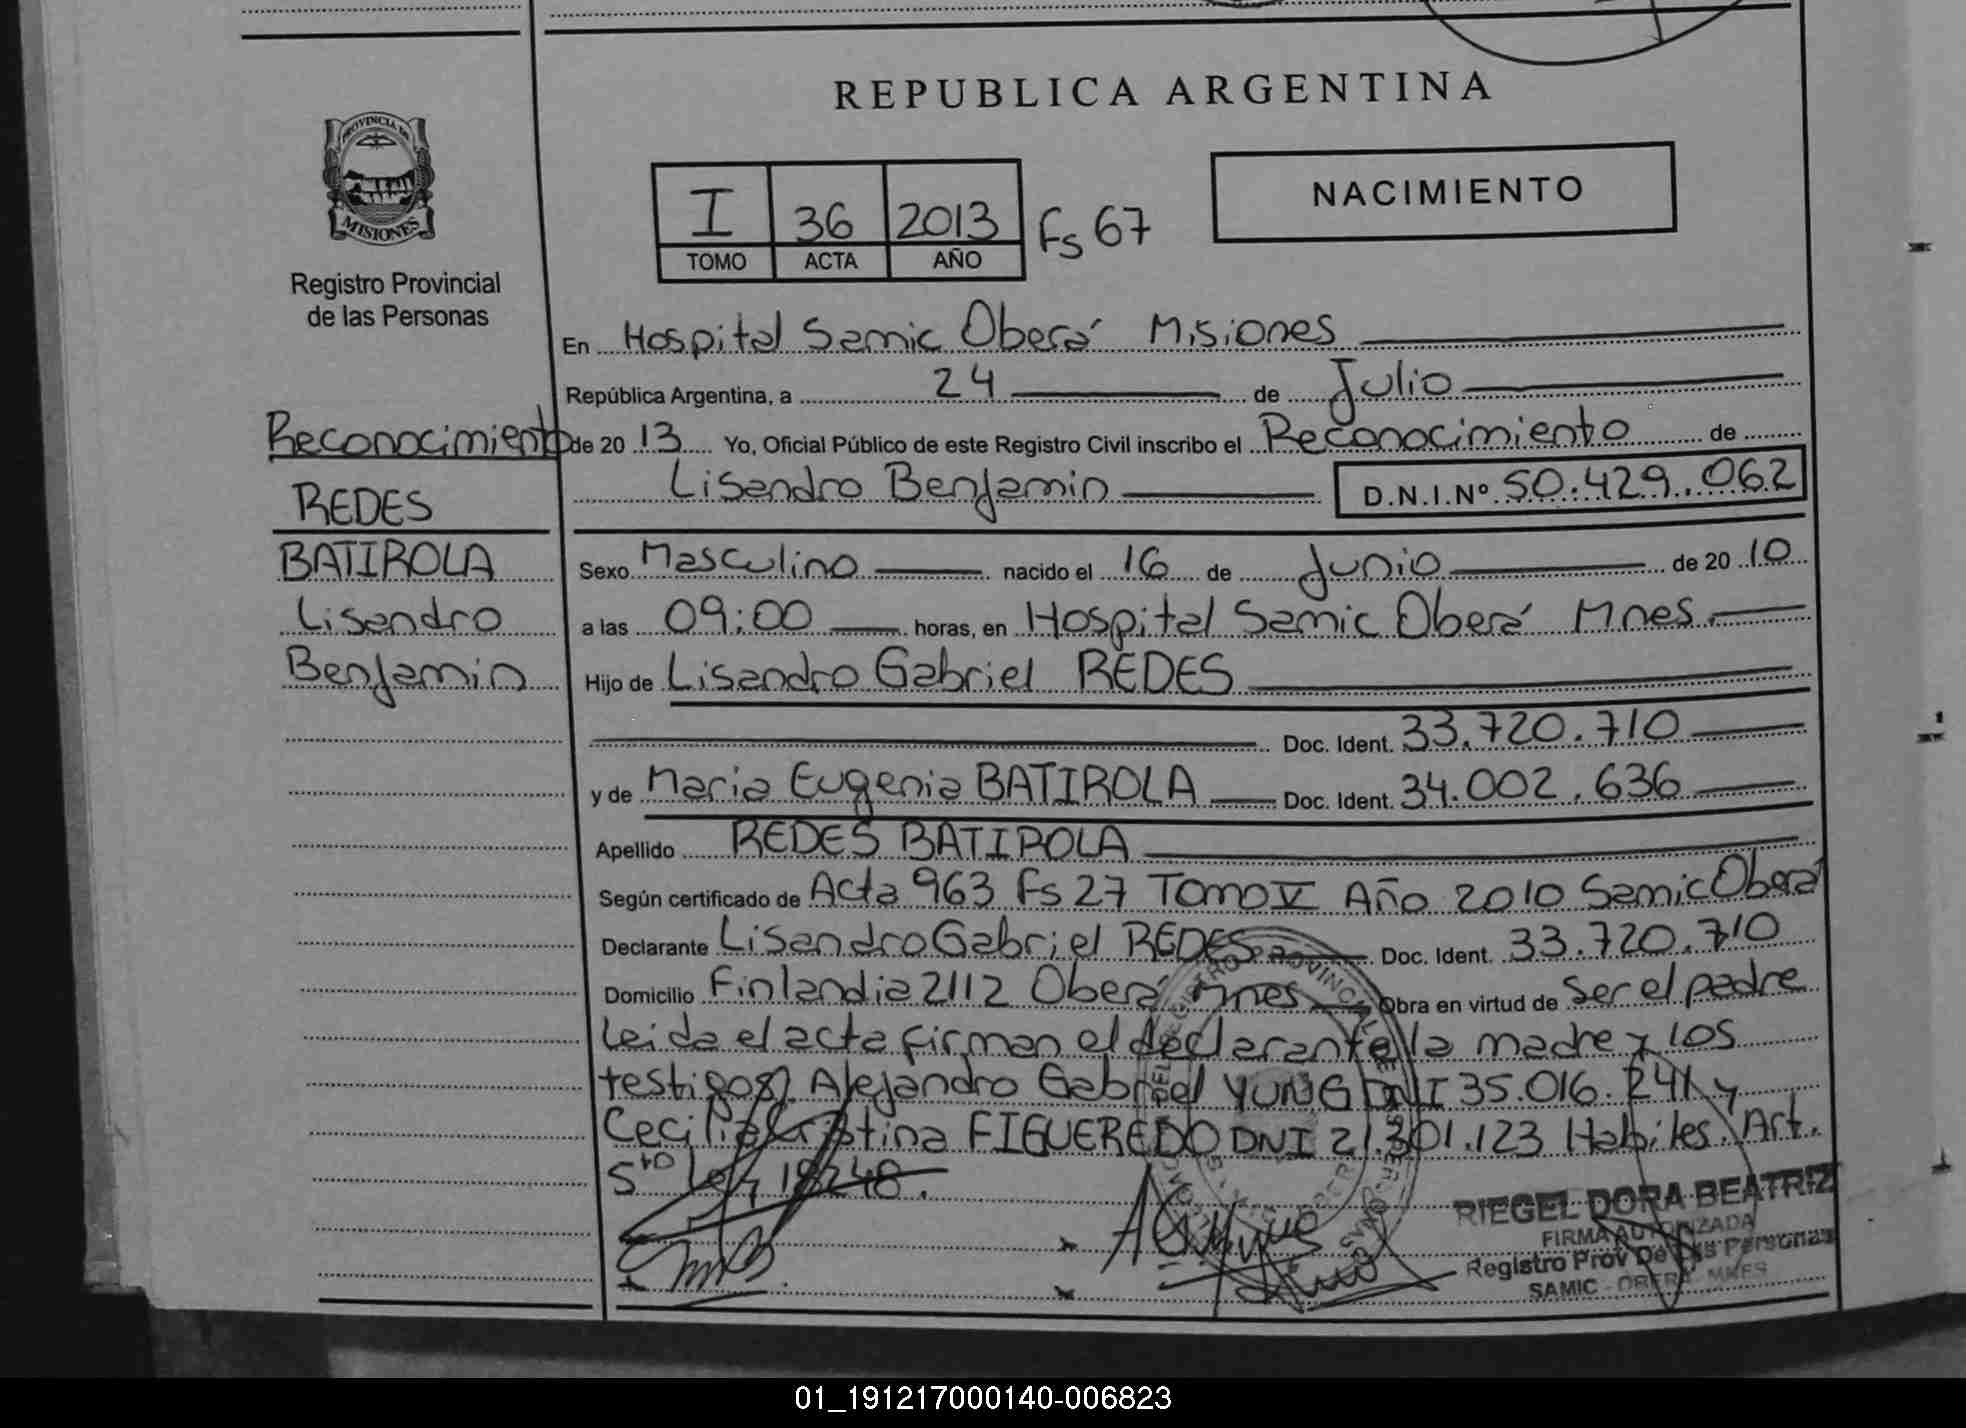 REPUBLICA ARGENTINA
PROVINCIA DE
MISIONES
Registro Provincial
de las Personas
NACIMIENTO
I 36 2013 Fs 67
TOMO ACTA AÑO
En Hospital Samic Oberá Misiones
República Argentina, a 24 de Julio
Reconocimiento
de 20 13 Yo, Oficial Público de este Registro Civil inscribo el Reconocimiento de
Lisandro Benjamin D.N.I.Nº 50.429.062
REDES
BATIROLA
Lisandro
Benjamin
Sexo Masculino nacido el 16 de Junio de 20 10
a las 09:00 horas, en Hospital Samic Oberá Mnes.
Hijo de Lisandro Gabriel REDES
Doc. Ident. 33.720.710
y de Maria Eugenia BATIROLA Doc. Ident. 34.002.636
Apellido REDES BATIROLA
Según certificado de Acta 963 Fs 27 Tomo V Año 2010 Samic Oberá
Declarante Lisandro Gabriel REDES Doc. Ident. 33.720.710
Domicilio Finlandia 2112 Oberá Mnes Obra en virtud de Ser el padre
Leida el acta firman el declarante la madre y los
testigos Alejandro Gabriel YUNG DNI 35.016.241 y
Cecilia Cristina FIGUEREDO DNI 21.301.123 Habiles. Art.
5to Ley 18248.
RIEGEL DORA BEATRIZ
FIRMA AUTORIZADA
Registro Prov De Las Personas
SAMIC - OBERA - MNES
01_191217000140-006823